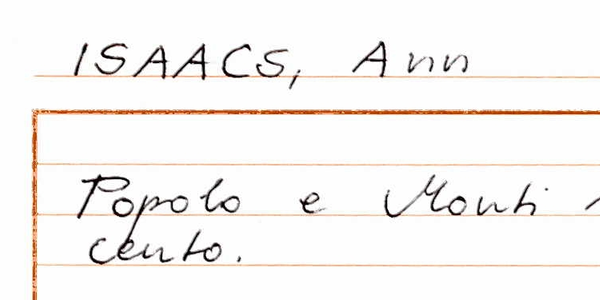 ISAACS, Ann
Popolo e Monti
cento.